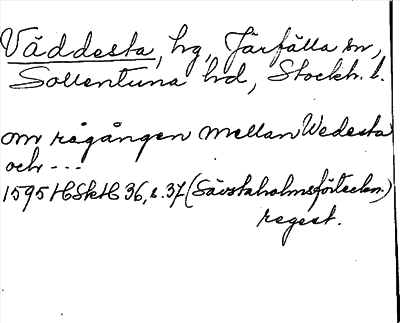 Väddesta, hg, Järfälla sn,
Sollentuna hd, Stockh. l.
om rågången mellan Wedesta
och ---
1595 HSkH 36, s. 37 (Sävstaholmsförteckn.)
regest.